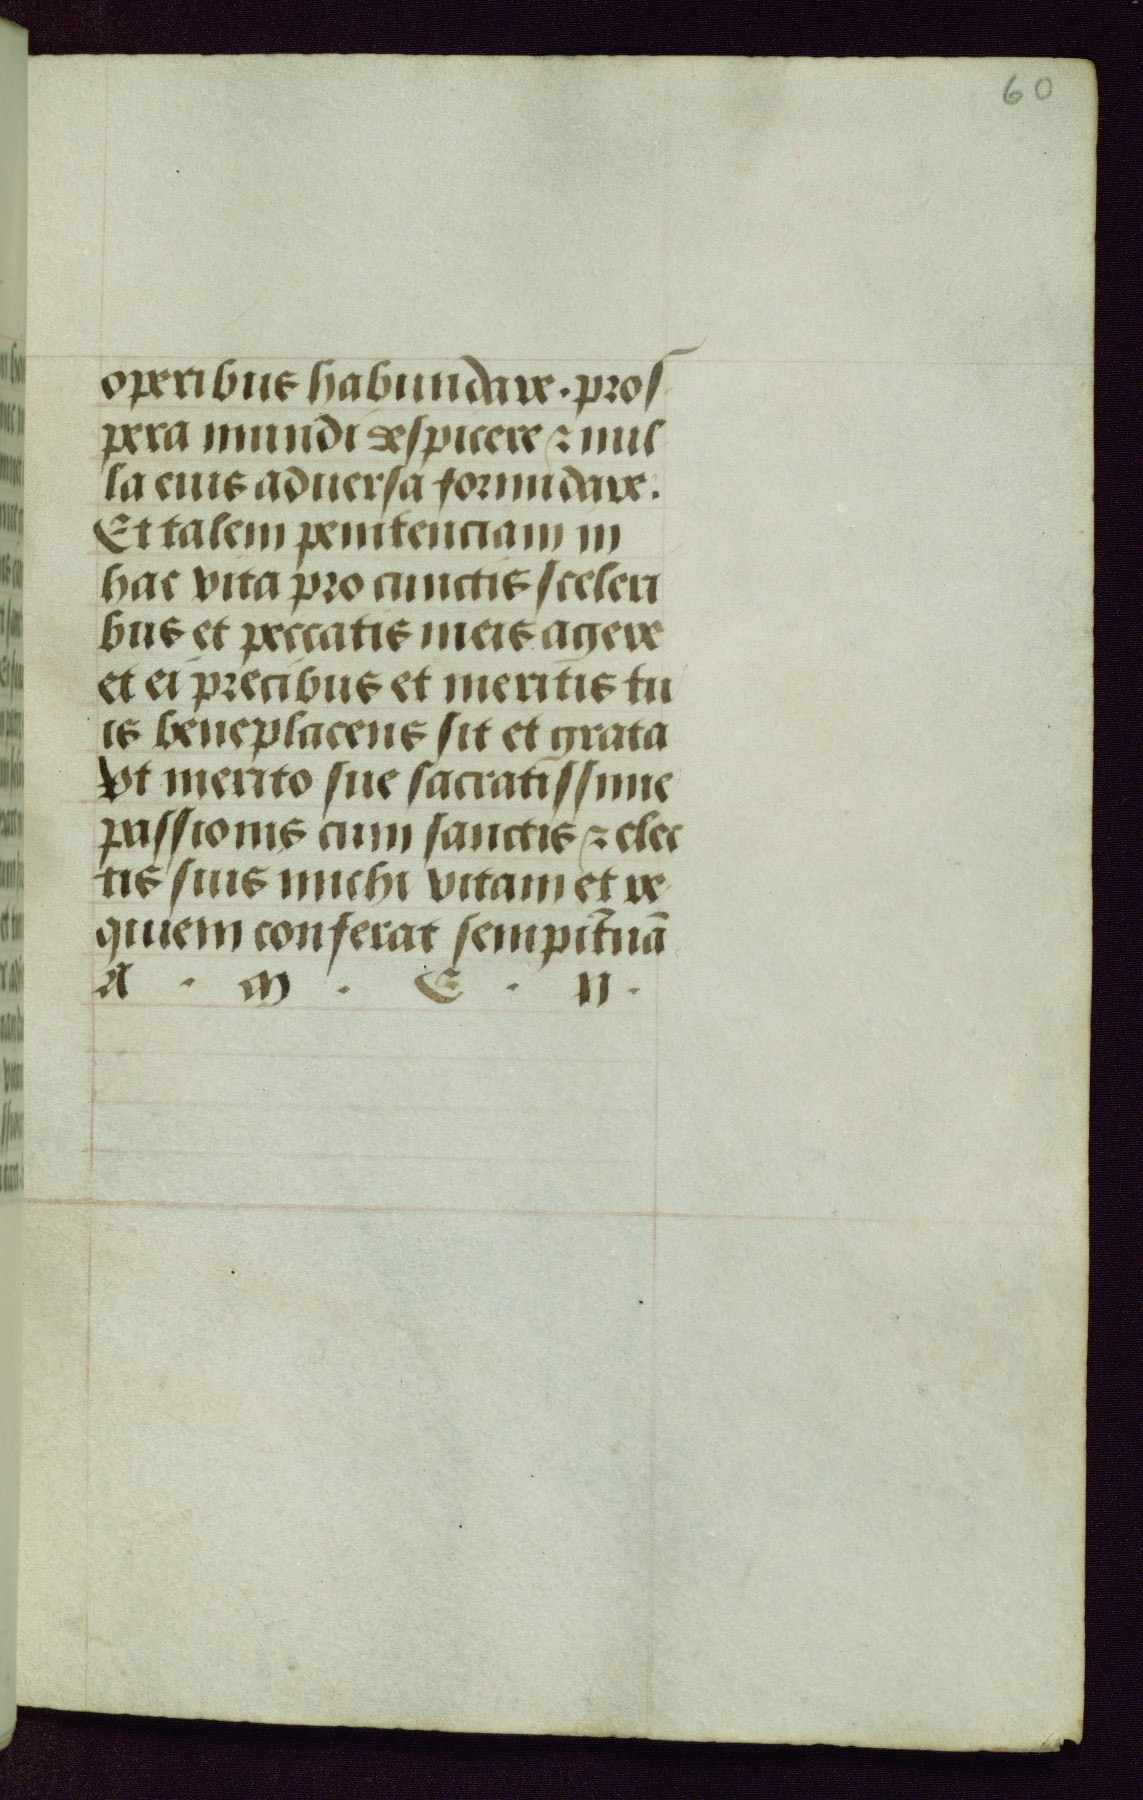 60
operibus habundare. pros
pera mundi despicere ⁊ nul
la eius aduersa formidare.
Et talem penitenciam in
hac vita pro cunctis sceleri
bus et peccatis meis agere
et ei precibus et meritis tu
is beneplacens sit et grata
Vt merito sue sacratissime
passionis cum sanctis ⁊ elec
tis suis michi vitam et re
quiem conferat sempit̄nā
A · M · E · N ·